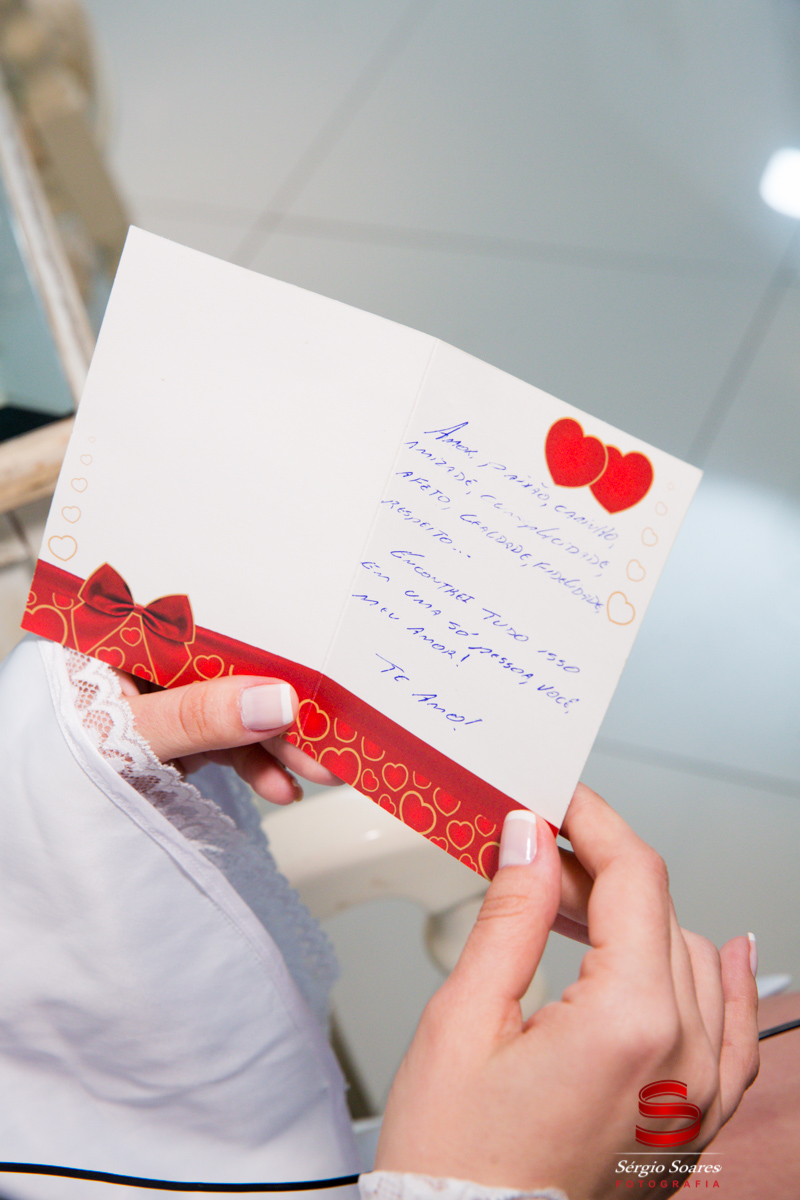 AMOR, PAIXÃO, CARINHO,
AMIZADE, CUMPLICIDADE,
AFETO, LEALDADE, FIDELIDADE,
RESPEITO...
ENCONTREI TUDO ISSO
EM UMA SÓ PESSOA, VOCÊ,
MEU AMOR!
TE AMO!
Sérgio Soares
FOTOGRAFIA